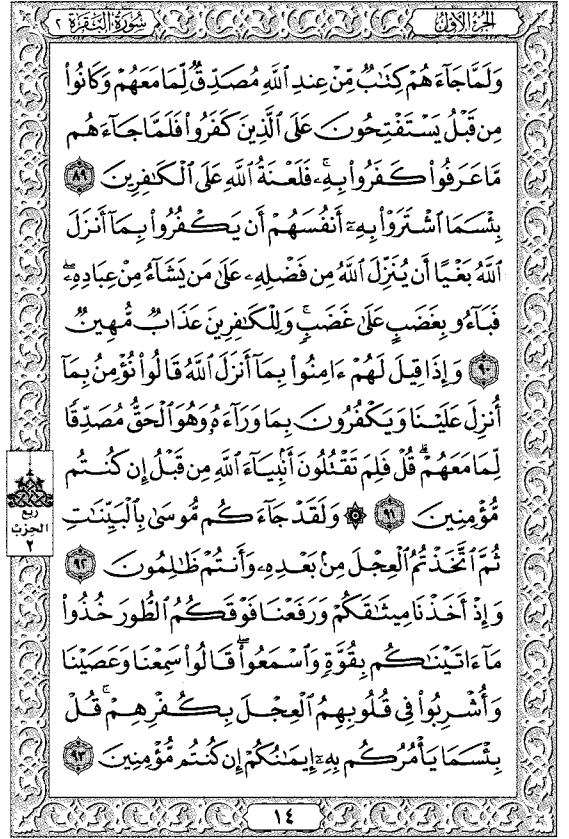 سُورَةُ البَقَرَةِ ٢
الجُزْءُ الأَوَّلُ
وَلَمَّا جَآءَهُمْ كِتَٰبٌ مِّنْ عِندِ ٱللَّهِ مُصَدِّقٌ لِّمَا مَعَهُمْ وَكَانُوا۟
مِن قَبْلُ يَسْتَفْتِحُونَ عَلَى ٱلَّذِينَ كَفَرُوا۟ فَلَمَّا جَآءَهُم
مَّا عَرَفُوا۟ كَفَرُوا۟ بِهِۦۚ فَلَعْنَةُ ٱللَّهِ عَلَى ٱلْكَٰفِرِينَ ٨٩
بِئْسَمَا ٱشْتَرَوْا۟ بِهِۦٓ أَنفُسَهُمْ أَن يَكْفُرُوا۟ بِمَآ أَنزَلَ
ٱللَّهُ بَغْيًا أَن يُنَزِّلَ ٱللَّهُ مِن فَضْلِهِۦ عَلَىٰ مَن يَشَآءُ مِنْ عِبَادِهِۦۖ
فَبَآءُو بِغَضَبٍ عَلَىٰ غَضَبٍۚ وَلِلْكَٰفِرِينَ عَذَابٌ مُّهِينٌ
٩٠ وَإِذَا قِيلَ لَهُمْ ءَامِنُوا۟ بِمَآ أَنزَلَ ٱللَّهُ قَالُوا۟ نُؤْمِنُ بِمَآ
أُنزِلَ عَلَيْنَا وَيَكْفُرُونَ بِمَا وَرَآءَهُۥ وَهُوَ ٱلْحَقُّ مُصَدِّقًا
لِّمَا مَعَهُمْۗ قُلْ فَلِمَ تَقْتُلُونَ أَنۢبِيَآءَ ٱللَّهِ مِن قَبْلُ إِن كُنتُم
مُّؤْمِنِينَ ٩١ ۞ وَلَقَدْ جَآءَكُم مُّوسَىٰ بِٱلْبَيِّنَٰتِ
ثُمَّ ٱتَّخَذْتُمُ ٱلْعِجْلَ مِنۢ بَعْدِهِۦ وَأَنتُمْ ظَٰلِمُونَ ٩٢
وَإِذْ أَخَذْنَا مِيثَٰقَكُمْ وَرَفَعْنَا فَوْقَكُمُ ٱلطُّورَ خُذُوا۟
مَآ ءَاتَيْنَٰكُم بِقُوَّةٍ وَٱسْمَعُوا۟ۖ قَالُوا۟ سَمِعْنَا وَعَصَيْنَا
وَأُشْرِبُوا۟ فِى قُلُوبِهِمُ ٱلْعِجْلَ بِكُفْرِهِمْۚ قُلْ
بِئْسَمَا يَأْمُرُكُم بِهِۦٓ إِيمَٰنُكُمْ إِن كُنتُم مُّؤْمِنِينَ ٩٣
ربع
الحزب
٢
١٤